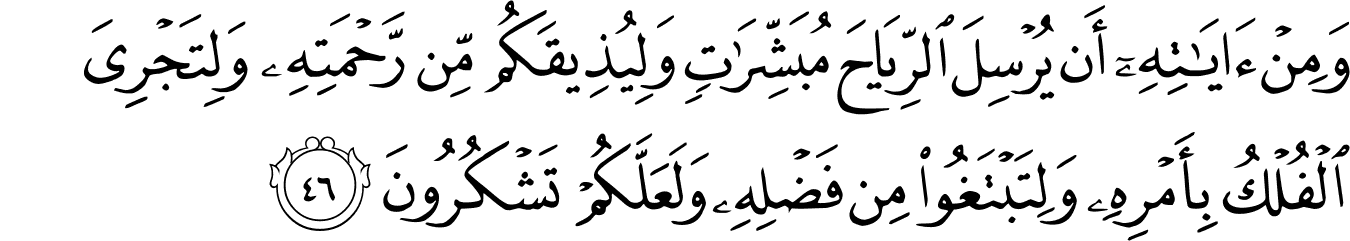 وَمِنْ ءَايَـٰتِهِۦٓ أَن يُرْسِلَ ٱلرِّيَاحَ مُبَشِّرَٰتٍ وَلِيُذِيقَكُم مِّن رَّحْمَتِهِۦ وَلِتَجْرِىَ
ٱلْفُلْكُ بِأَمْرِهِۦ وَلِتَبْتَغُوا۟ مِن فَضْلِهِۦ وَلَعَلَّكُمْ تَشْكُرُونَ ٤٦